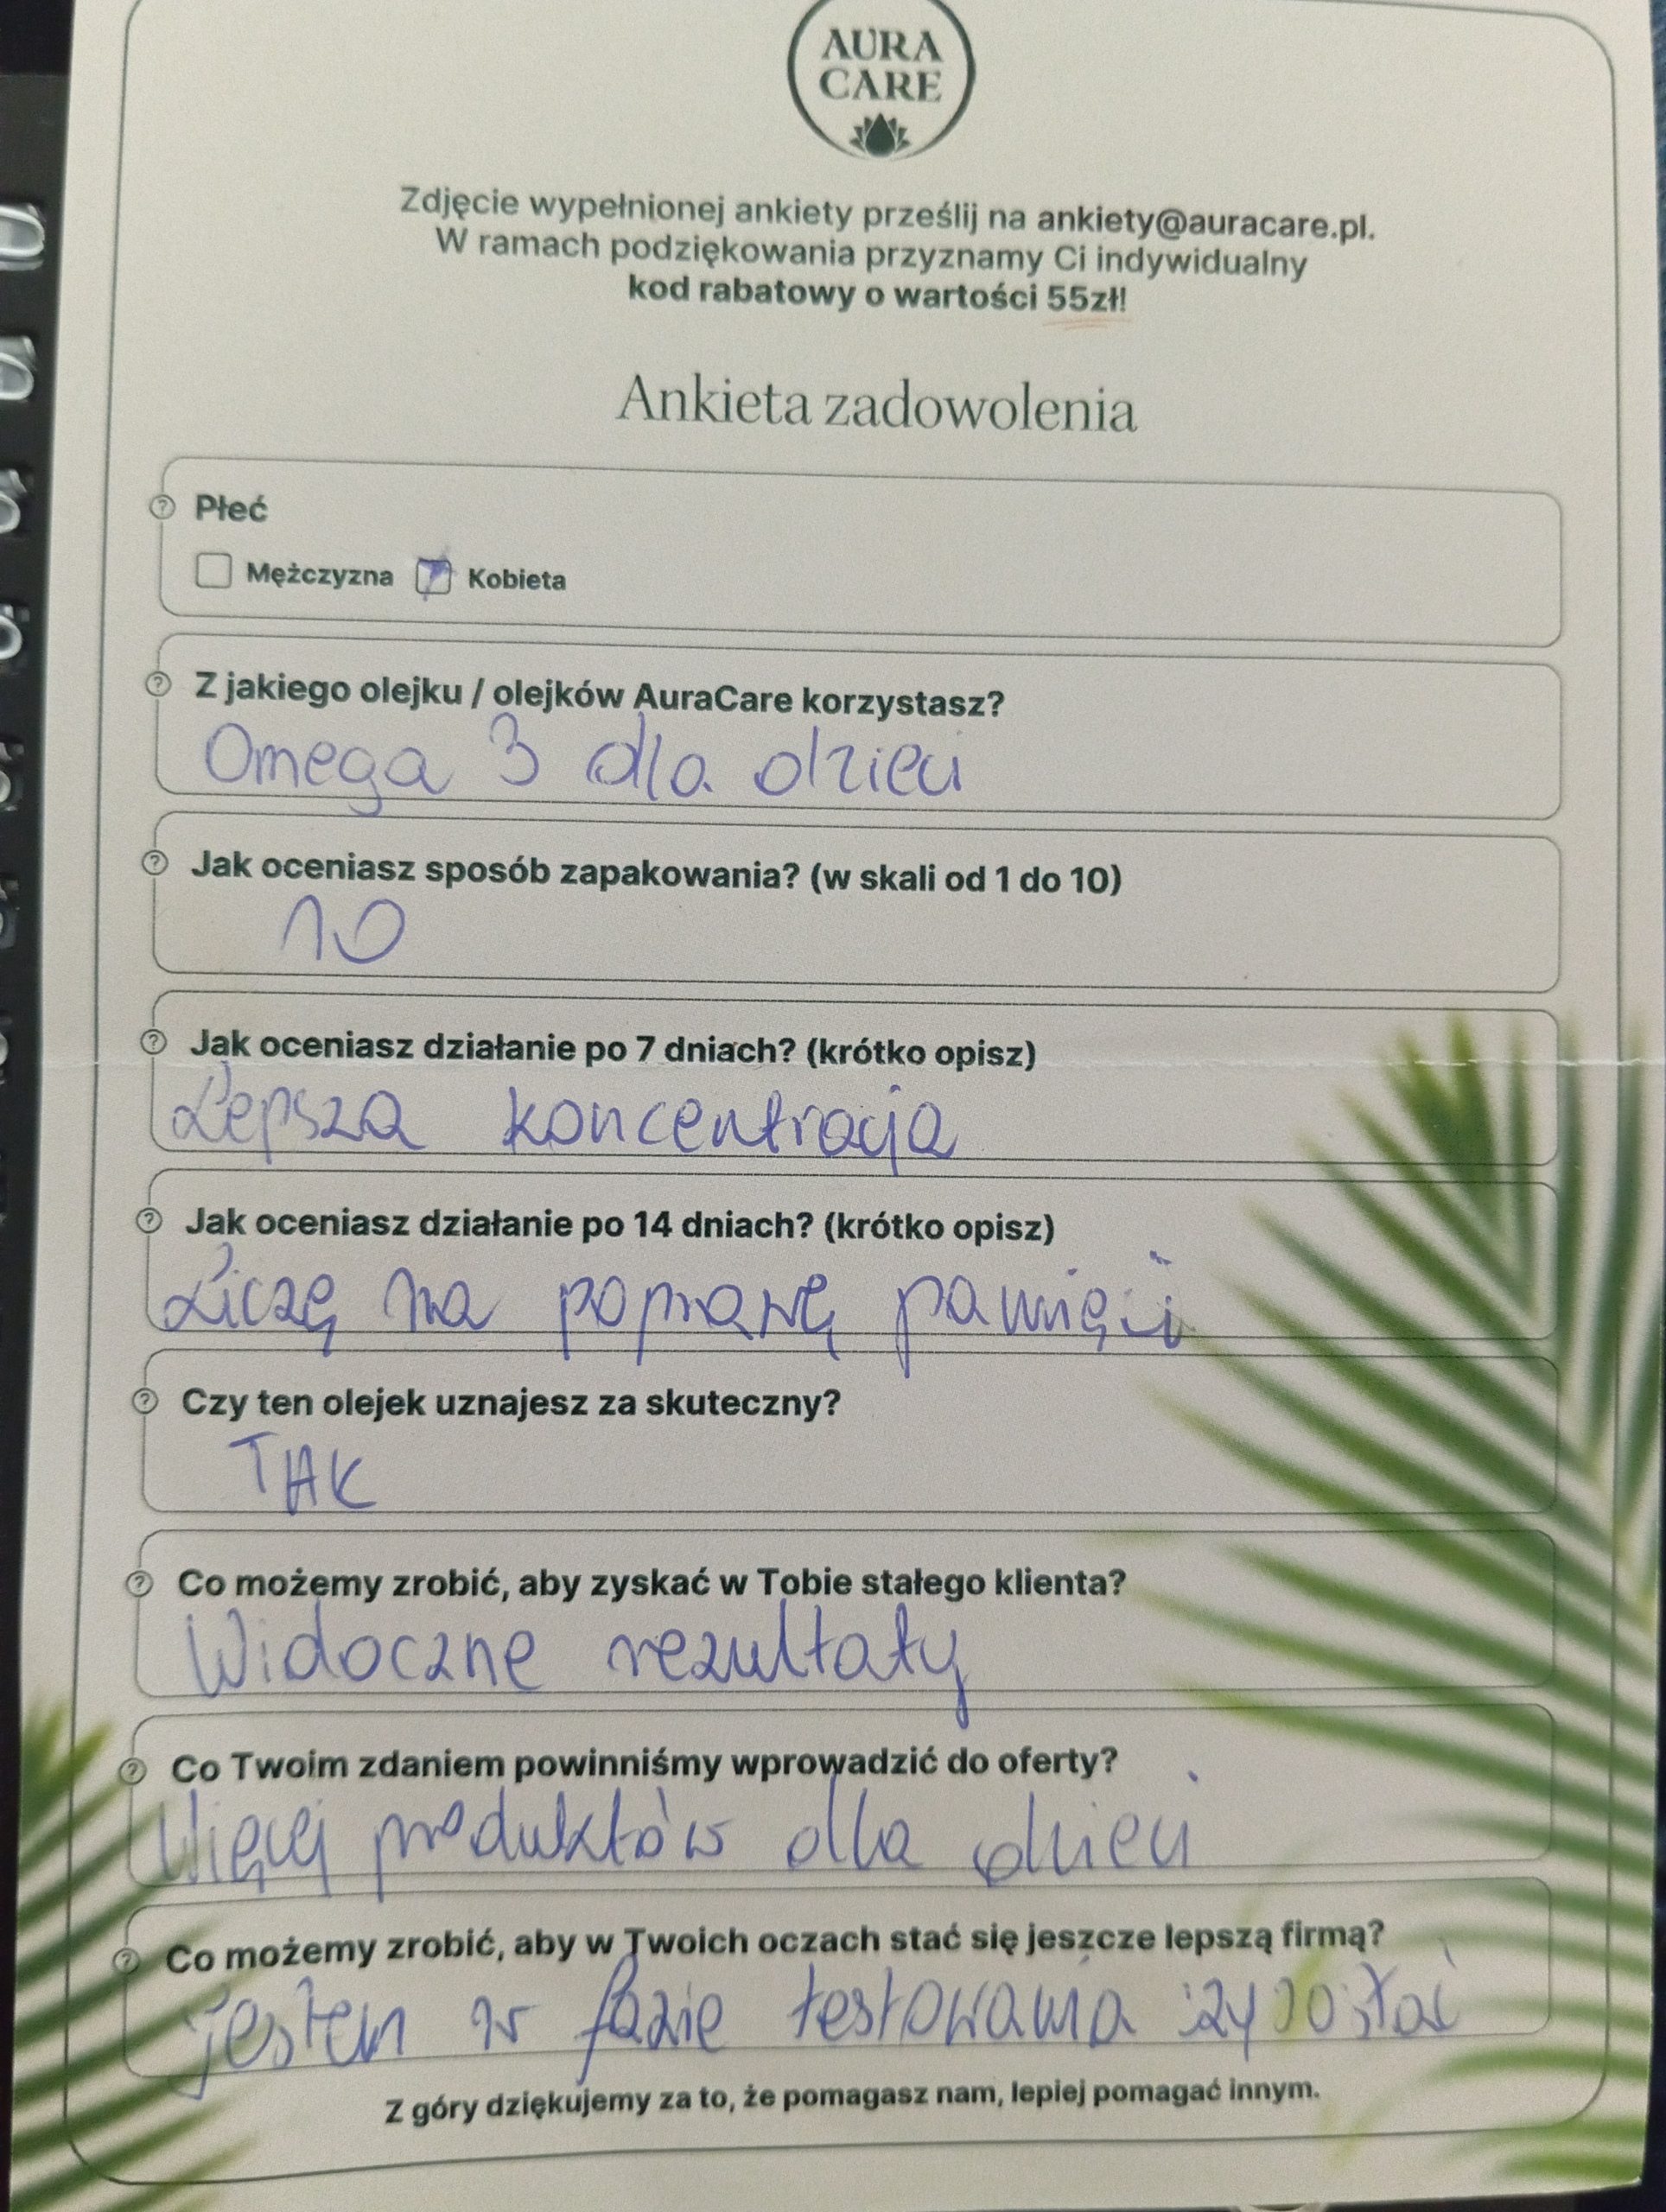 AURA
CARE
Zdjęcie wypełnionej ankiety prześlij na ankiety@auracare.pl.
W ramach podziękowania przyznamy Ci indywidualny
kod rabatowy o wartości 55zł!
Ankieta zadowolenia
Płeć
Mężczyzna Kobieta
Z jakiego olejku / olejków AuraCare korzystasz?
Omega 3 dla dzieci
Jak oceniasz sposób zapakowania? (w skali od 1 do 10)
10
Jak oceniasz działanie po 7 dniach? (krótko opisz)
Lepsza koncentracja
Jak oceniasz działanie po 14 dniach? (krótko opisz)
Liczę na poprawę pamięci
Czy ten olejek uznajesz za skuteczny?
TAK
Co możemy zrobić, aby zyskać w Tobie stałego klienta?
Widoczne rezultaty
Co Twoim zdaniem powinniśmy wprowadzić do oferty?
Więcej produktów dla dzieci
Co możemy zrobić, aby w Twoich oczach stać się jeszcze lepszą firmą?
jestem w fazie testowania
Z góry dziękujemy za to, że pomagasz nam, lepiej pomagać innym.